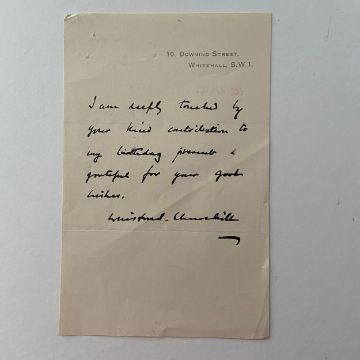 10, Downing Street,
Whitehall, S.W.1.
I am deeply touched by
your kind contribution to
my birthday present &
grateful for your good
wishes.
Winston S. Churchill